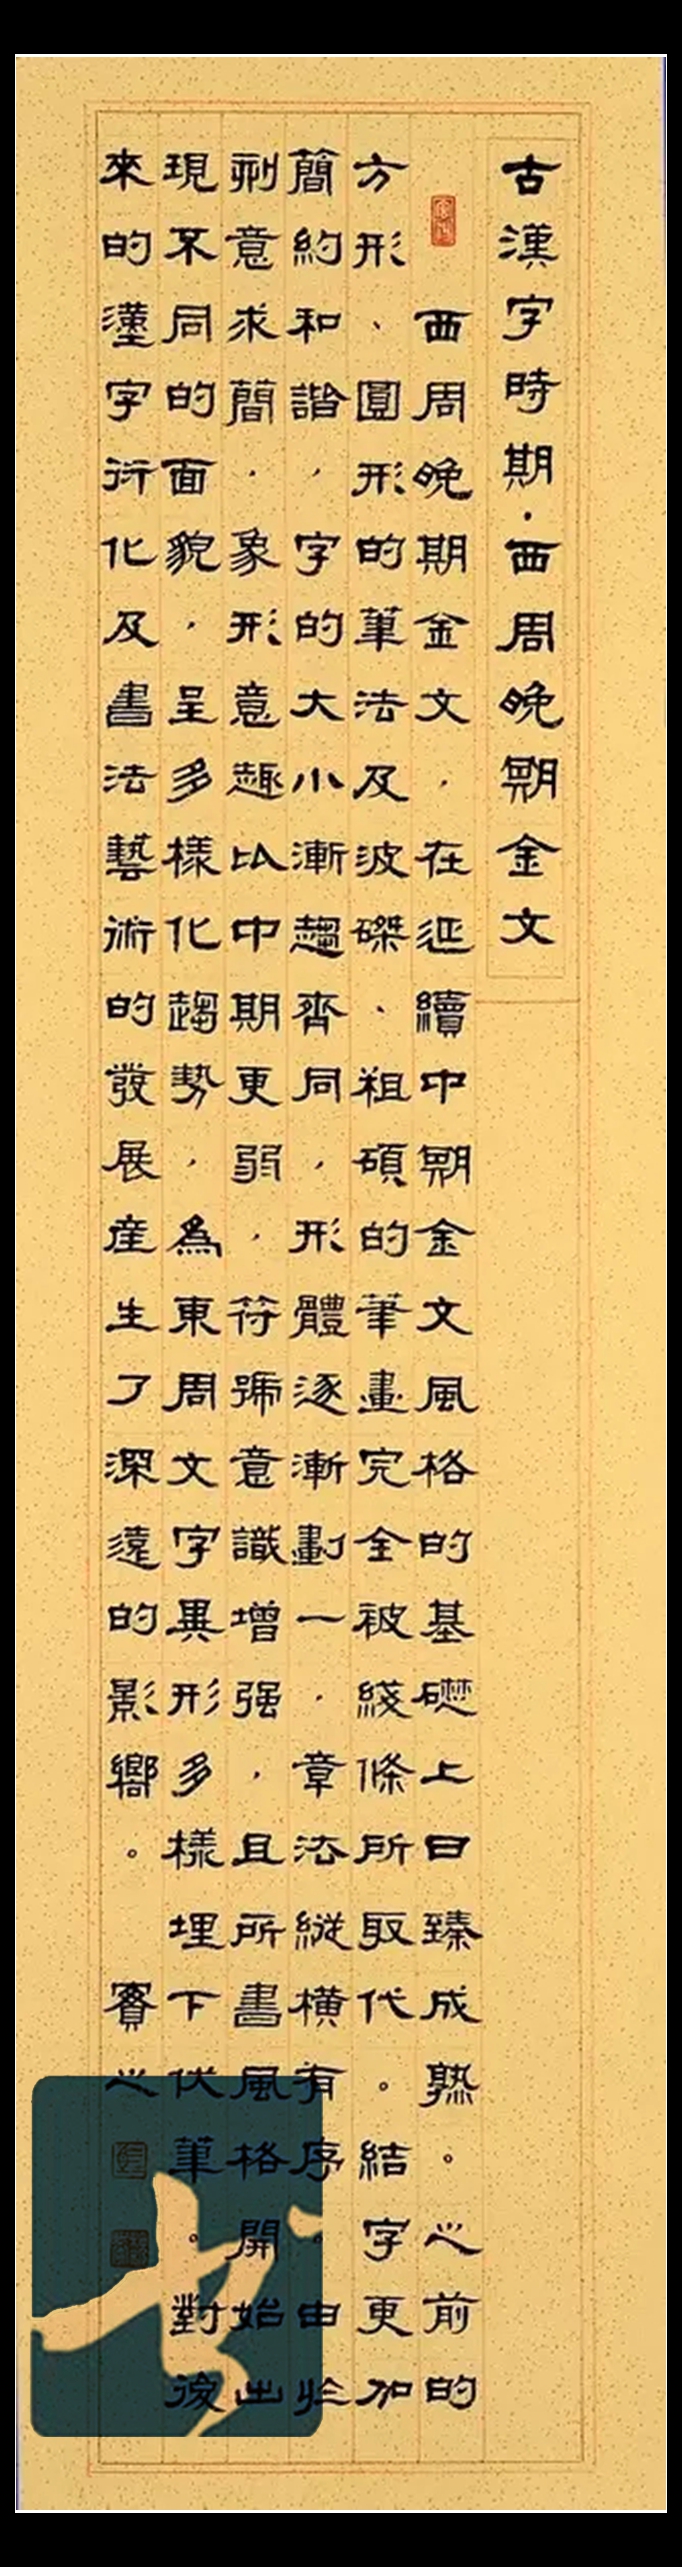 古漢字時期·西周晚期金文
西周晚期金文，在延續中期金文風格的基礎上日臻成熟。之前的
方形、圓形的筆法及波磔、粗碩的筆畫完全被綫條所取代。結字更加
簡約和諧，字的大小漸趨齊同，形體逐漸劃一，章法縱橫有序。由於
刻意求簡，象形意趣比中期更弱，符號意識增强，且所書風格開始出
現不同的面貌，呈多樣化趨勢，為東周文字異形多樣埋下伏筆。對後
來的漢字衍化及書法藝術的發展産生了深遠的影響。 賓之
书